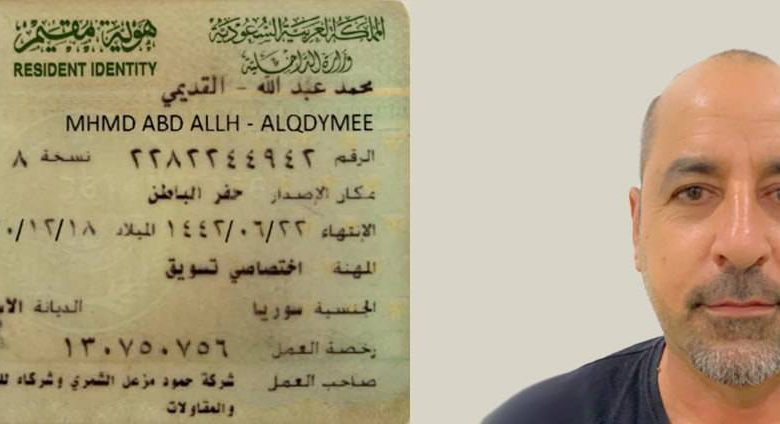 المملكة العربية السعودية
وزارة الداخلية
هوية مقيم
RESIDENT IDENTITY
محمد عبد الله - القديمي
MHMD ABD ALLH - ALQDYMEE
الرقم ٢٢٨٢٢٤٤٩٤٢ نسخة ٨
مكان الإصدار حفر الباطن
الإنتهاء ١٤٤٢/٠٦/٢٢ الميلاد ٠/١٢/١٨
المهنة اختصاصي تسويق
الجنسية سوريا الديانة
رخصة العمل ١٣٠٧٥٠٧٥٦
صاحب العمل شركة حمود مزعل الشمري وشركاه
والمقاولات